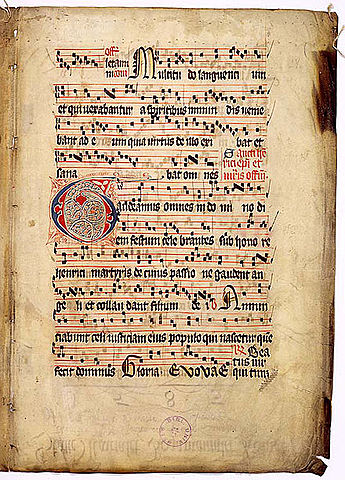 off
Multitudo languenti um
et qui vexabantur a spiritibus inmun dis venie
bant ad e um quia virtus de illo exi bat et
sana bat om nes
Gaudeamus omnes in do mi no di
em festum cele brantes sub hono re
henrici martyris de cuius passio ne gaudent an
ge li et collau dant filium de i
Annun
ciabunt celi iusticiam eius populo qui nascetur que
Bea
fecit dominus Gloria EVOVAE
tus vir
qui tim
8